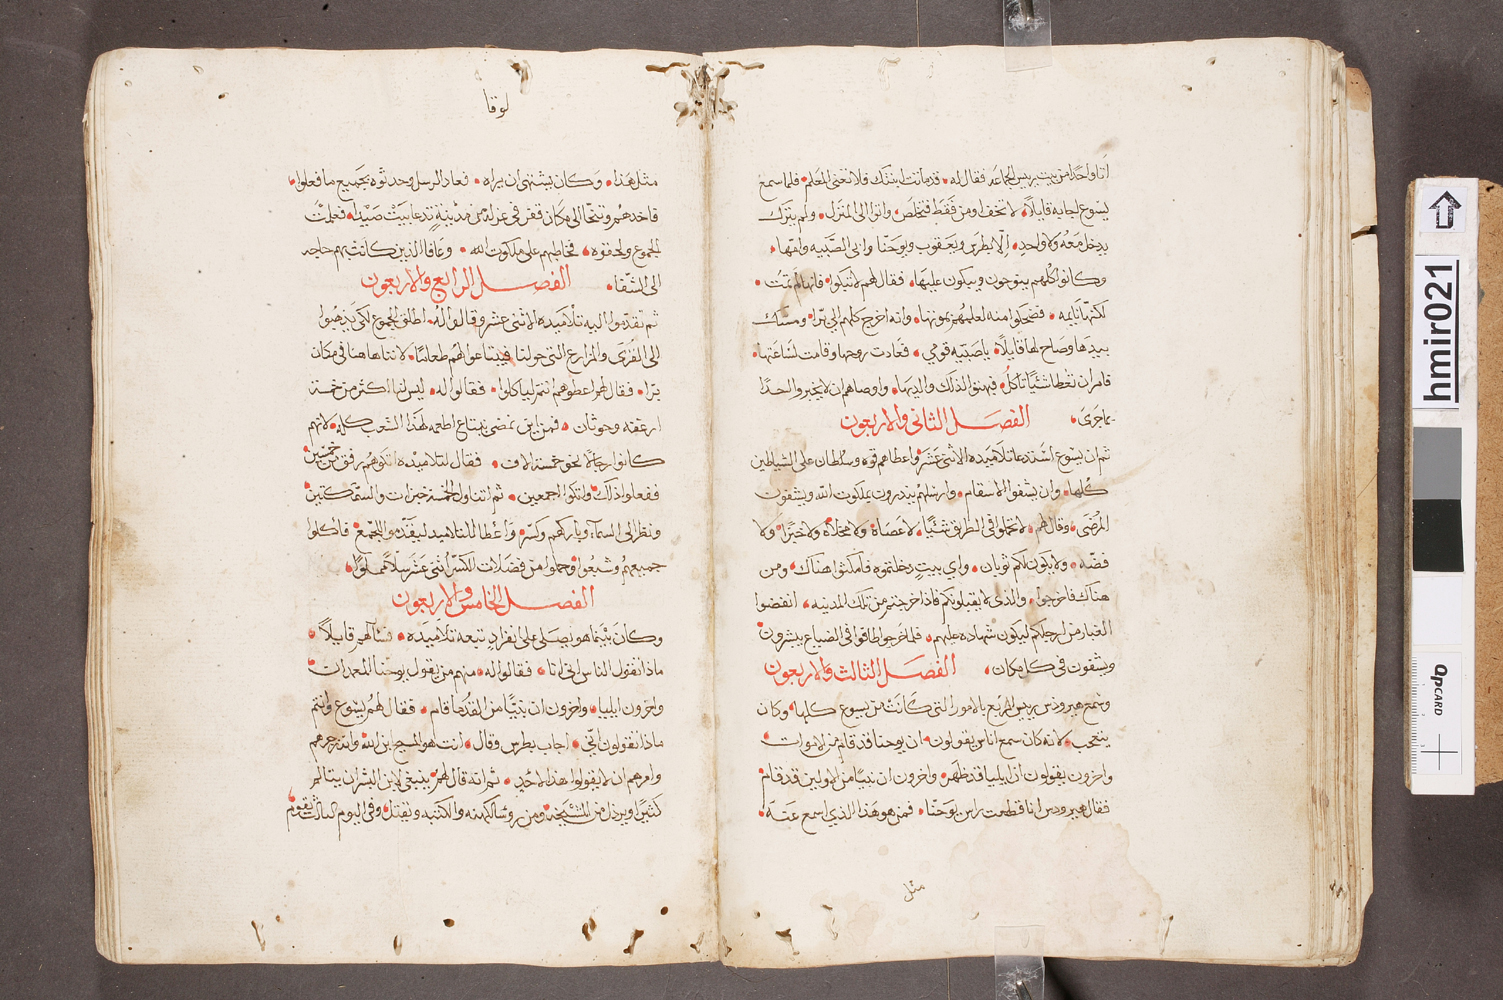 اتا واحدًا من بيت ريس الجماعه فقال له قد ماتت ابنتك فلا تعنى المعلم فلما سمع
يسوع اجابه قايلًا لا تخف اومن فقط فتخلص واتوا الى المنزل ولم يترك
يدخل معه ولا واحد الا بطرس ويعقوب ويوحنا وابى الصبيه وامها
وكانوا كلهم ينوحون ويبكون عليها فقال لهم لا تبكوا فانها لم تمت
لكنها نايمه فضحكوا منه لعلمهم بموتها وانه اخرج كلهم الى برا ومسك
بيدها وصاح لها قايلًا يا صبيه قومى فعادت روحها وقامت لساعتها
فامر ان تعطا شئيًا تاكل فبهتوا لذلك والديها واوصاهم ان لا يخبروا احدًا
بما جرى الفصل الثانى والاربعون
ثم ان يسوع استدعا تلاميذه الاثنى عشر واعطاهم قوه وسلطان على الشياطين
كلها وان يشفوا الاسقام وارسلهم ينذرون بملكوت الله ويشفون
المرضى وقال لهم لا تحملوا فى الطريق شئيًا لا عصاة ولا مخلاه ولا خبزًا ولا
فضه ولا يكون لكم ثوبان واي بيت دخلتموه فامكثوا هناك ومن
هناك فاخرجوا والذى لا يقبلونكم فاذا خرجتم من تلك المدينه انفضوا
الغبار من ارجلكم ليكون شهاده عليهم فلما خرجوا طافوا فى الضياع يبشرون
ويشفون فى كل مكان الفصل الثالث والاربعون
وسمع هيرودس ريس الربع بالامور التى كانت من يسوع كلها وكان
يتعجب لانه كان سمع اناس يقولون ان يوحنا قد قام من الاموات
واخرون يقولون ان ايليا قد ظهر واخرون ان نبيًا من الاولين قد قام
فقال هيرودس انا قطعت راس يوحنا فمن هو هذا الذي اسمع عنه
مثل
لوقا
مثل هذا وكان يشتهى ان يراه فعاد الرسل وحدثوه بجميع ما فعلوا
فاخذهم وتنحا الى مكان قفر فى عزله من مدينة تدعا بيت صيدا فعلمت
الجموع ولحقوه فخاطبهم على ملكوت الله وعافا الذين كانت بهم حاجه
الى الشفا الفصل الرابع والاربعون
ثم تقدموا اليه تلاميذه الاثنى عشر وقالوا له اطلق الجموع لكى يذهبوا
الى القرى والمزارع التى حولنا فيبتاعوا لهم طعامًا لاننا هاهنا فى مكان
برًا فقال لهم اعطوهم انتم لياكلوا فقالوا له ليس لنا اكثر من خمسة
ارغفه وحوتان فمن اين نمضى نبتاع اطعمه لهذا الشعب كله لانهم
كانوا رجالًا نحو خمسة الاف فقال لتلاميذه اتكوهم رفق من خمسين
ففعلوا ذلك واتكوا اجمعين ثم اتناول الخمسة خبزات والسمكتين
ونظر الى السماء وباركهم وكسر واعطا للتلاميذ ليقدموا للجمع فاكلوا
جميعهم وشبعوا وحملوا من فضلات الكسر اثنى عشر سلًا مملوًا
الفصل الخامس والاربعون
وكان بينما هو يصلى على انفراد تبعه تلاميذه فسالهم قايلًا
ماذا تقول الناس انى انا فقالوا له منهم من يقول يوحنا المعمدان
واخرون ايليا واخرون ان نبيًا من القدما قام فقال لهم يسوع وانتم
ماذا تقولون انى اجاب بطرس وقال انت هو المسيح ابن الله وانتهرهم
وامرهم ان لا يقولوا هذا لاحد ثم انه قال لهم ينبغى لابن البشر ان يتالم
كثيرًا ويرذل من المشيخه ومن روسا الكهنه والكتبه ويقتل وفى اليوم الثالث يقوم
hmir021
dpCARD